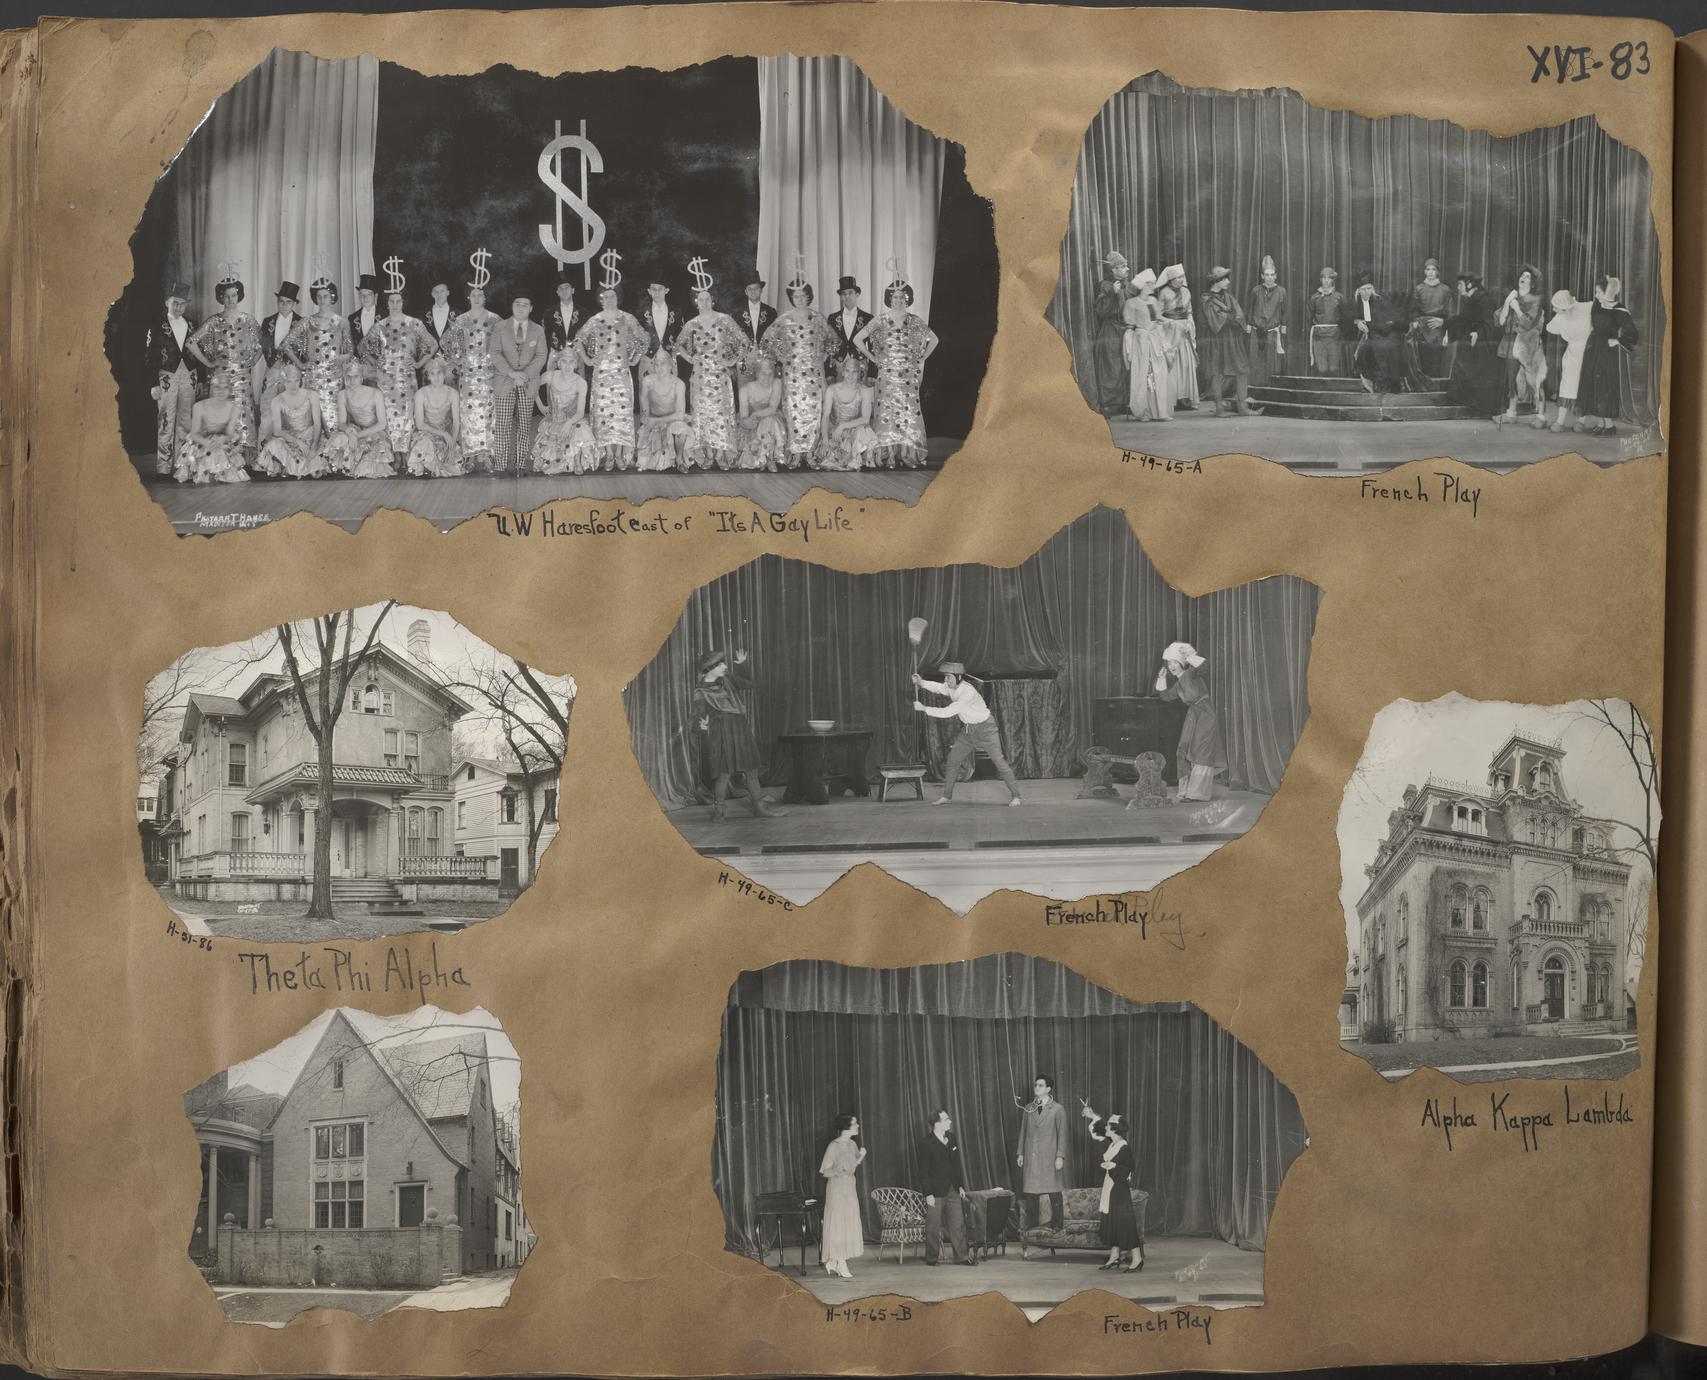 XVI-83
$
PHOTOART HOUSE
MADISON WIS
U.W Haresfoot cast of "Its A Gay Life"
H-49-65-A
French Play
H-51-86
Theta Phi Alpha
H-49-65-C
French Play
Alpha Kappa Lambda
H-49-65-B
French Play